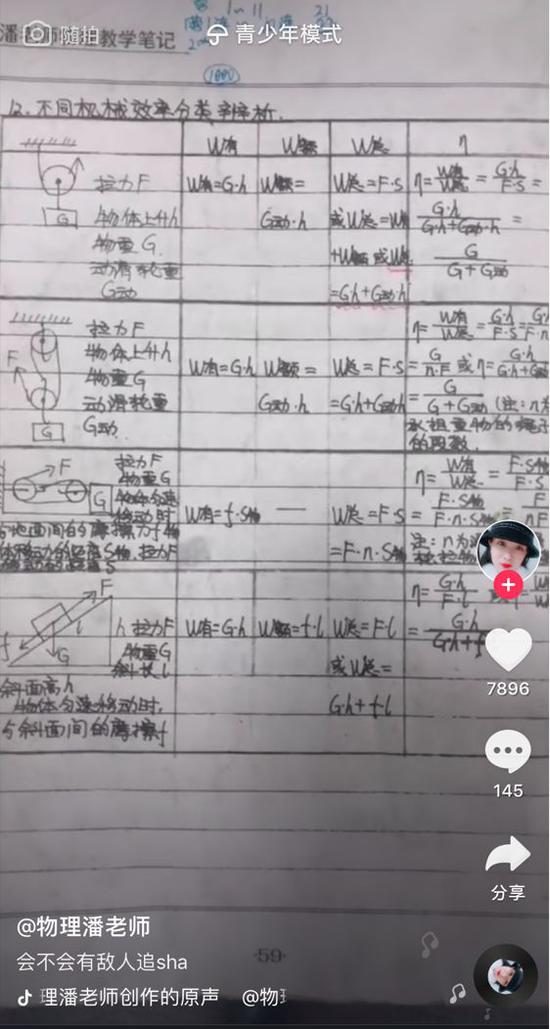 潘老师 教学笔记
随拍
青少年模式
12. 不同机械效率分类辨析.
W有 W额 W总 η
拉力F
物体上升h
物重G.
动滑轮重
G动
W有=G·h
W额=
G动·h
W总=F·s
或W总=W有
+W额 或W总
=Gh+G动h
η=W有/W总=G·h/F·s=
G·h/G·h+G动·h=
G/G+G动
拉力F
物体上升h
物重G
动滑轮重
G动.
F
G
W有=G·h
W额=
G动·h
W总=F·s
=G·h+G动h
η=W有/W总=G·h/F·s=
=G/n·F 或η=G·h/G·h+G动
=G/G+G动 (注:n为
承担重物的绳子
的段数.
拉力F
物重G
物体匀速
移动时
与地面间的摩擦力f 物
体移动的距离S物, 拉力F
移动的距离S
F
G
W有=f·S物
—
W总=F·S
=F·n·S物
η=W有/W总=F·S物/F·S
=F·S物/F·n·S物=
注:n为
F
l
h
f
G
拉力F
物重G
斜长l
斜面高h
物体匀速移动时,
与斜面间的摩擦f
W有=G·h
W额=f·l
W总=F·l
或W总=
G·h+f·l
η=G·h/F·l
=G·h/Gh+f
7896
145
分享
@物理潘老师
会不会有敌人追sha
理潘老师创作的原声 @物理
·59·